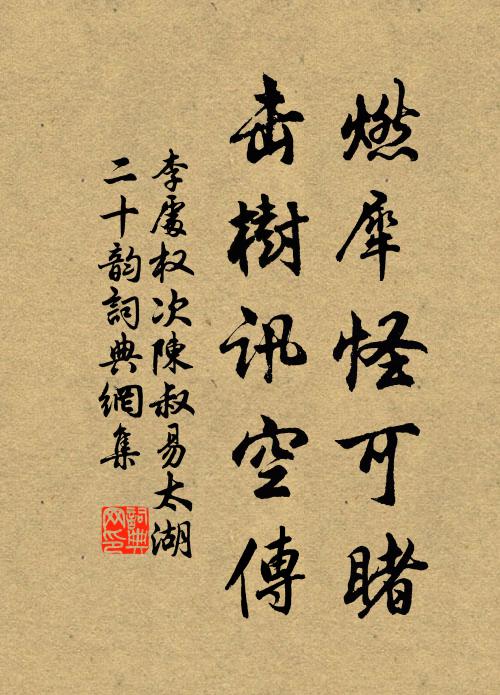 燃犀怪可睹
击樹訊空傳
李處权次陳叔易太湖
二十韵詞典網集
詞典網印